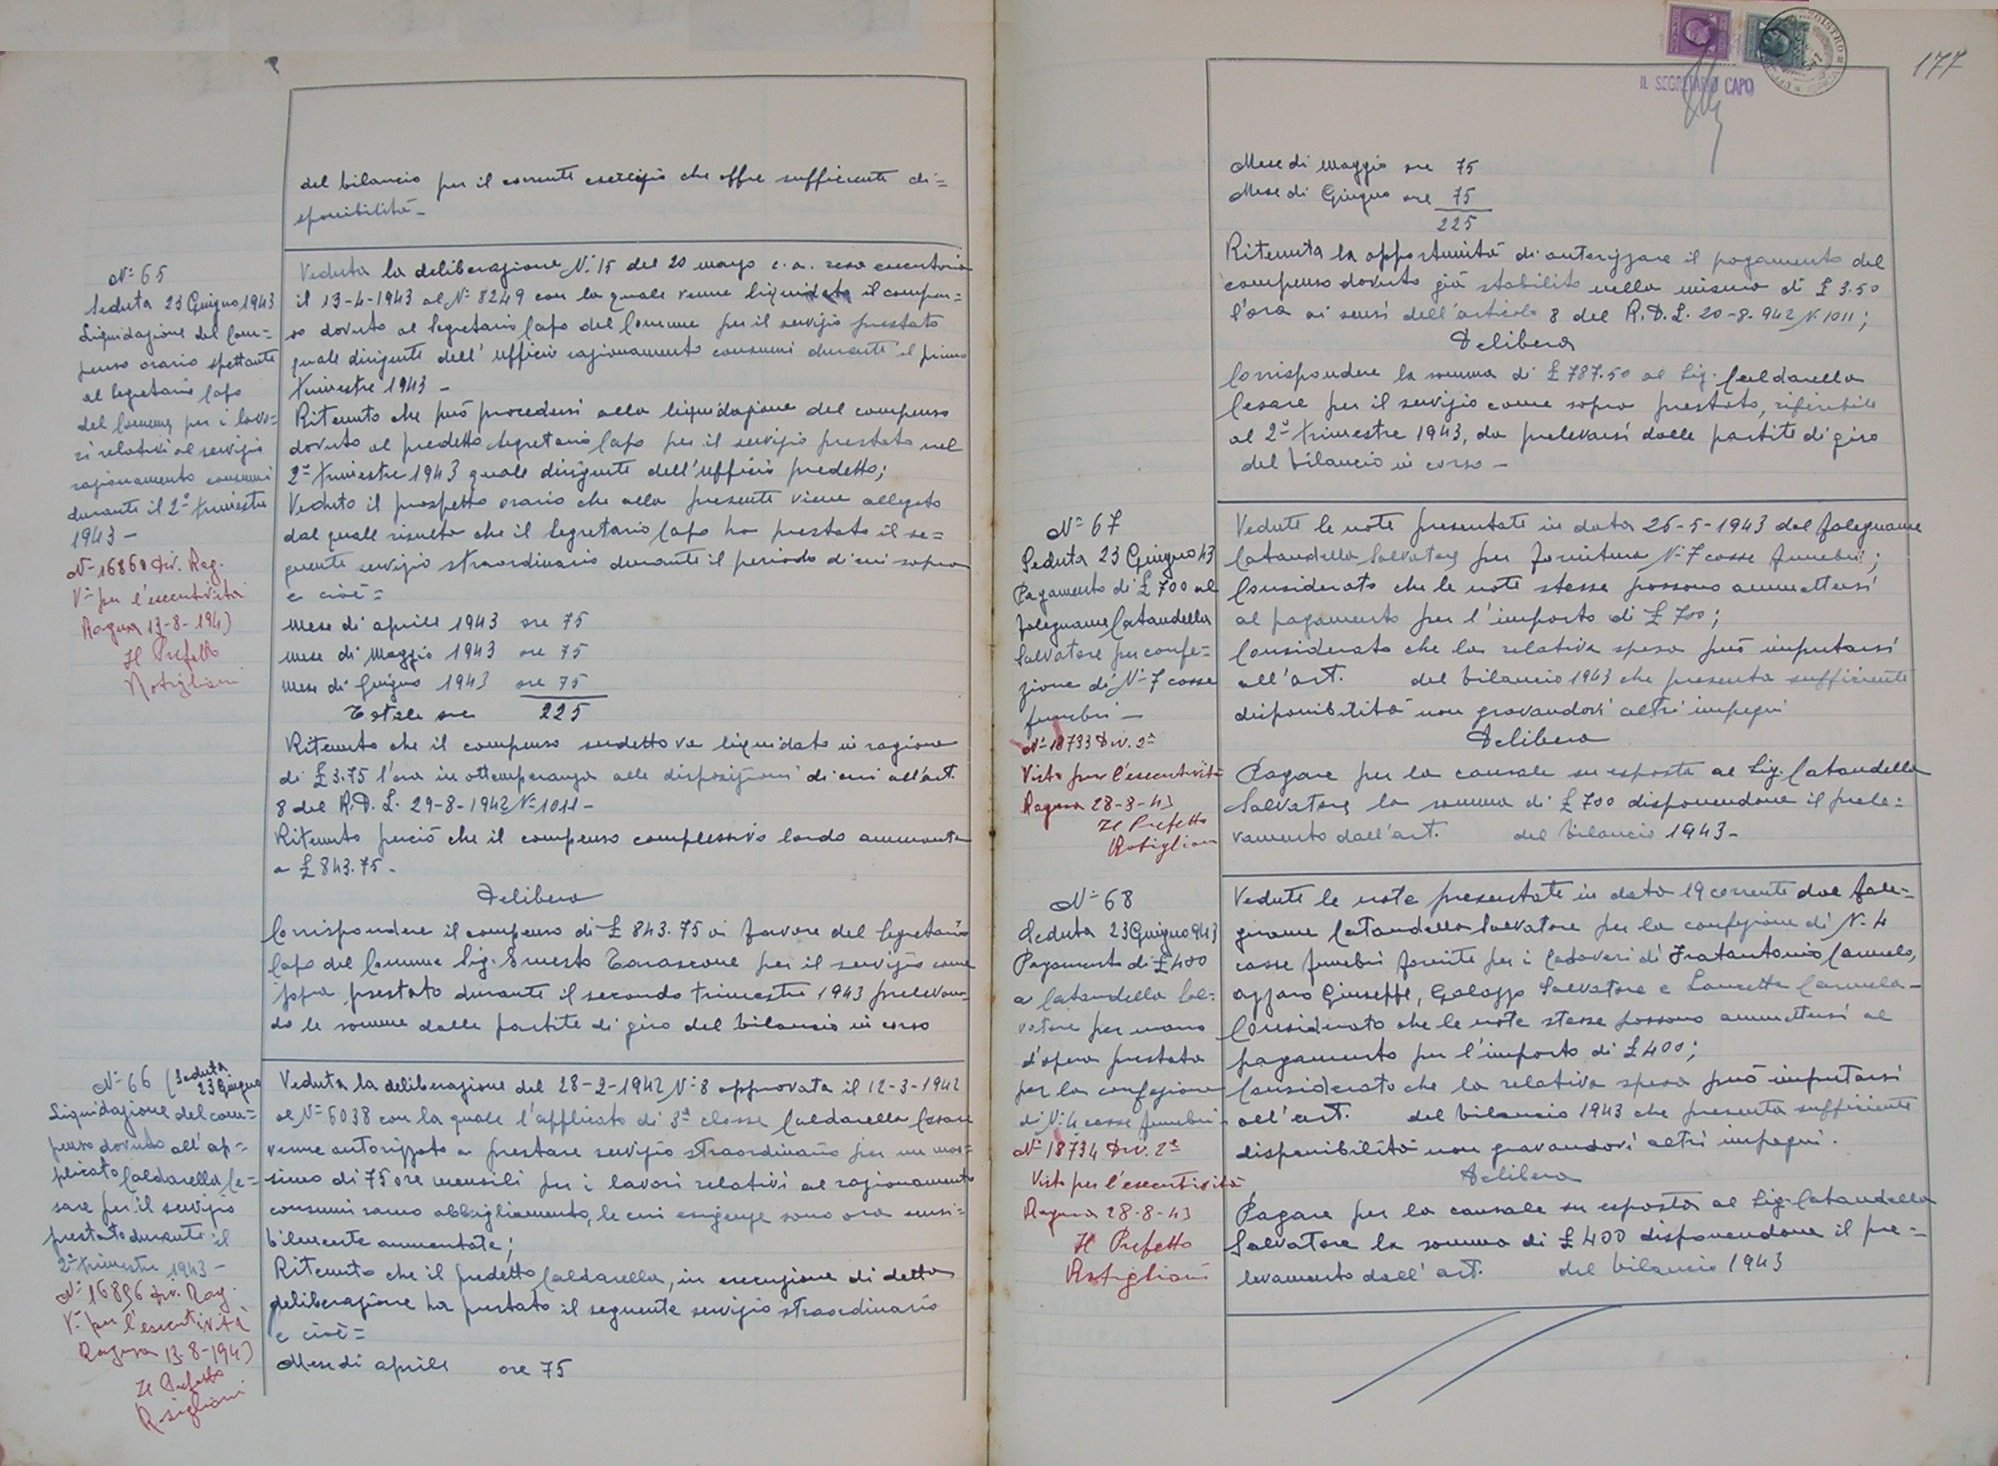 del bilancio per il corrente esercizio che offre sufficiente di=
sponibilità -
N° 65
Seduta 23 Giugno 1943
Liquidazione del com=
penso orario spettante
al Segretario Capo
del Comune per i lavo=
ri relativi al servizio
razionamento consumi
durante il 2° trimestre
1943 -
N° 16860 Div. Rag.
V° per l'esecutività
Ragusa 13-8-1943
Il Prefetto
Veduta la deliberazione N. 15 del 20 marzo c.a. resa esecutoria
il 13-4-1943 al N° 8249 con la quale venne liquidato il compen=
so dovuto al Segretario Capo del Comune per il servizio prestato
quale dirigente dell'ufficio razionamento consumi durante il primo
trimestre 1943 -
Ritenuto che può procedersi alla liquidazione del compenso
dovuto al predetto Segretario Capo per il servizio prestato nel
2° trimestre 1943 quale dirigente dell'ufficio predetto;
Veduto il prospetto orario che alla presente viene allegato
dal quale risulta che il Segretario Capo ha prestato il se=
guente servizio straordinario durante il periodo di cui sopra
e cioè =
Mese di aprile 1943 ore 75
Mese di Maggio 1943 ore 75
Mese di Giugno 1943 ore 75
Totale ore 225
Ritenuto che il compenso suddetto va liquidato in ragione
di £ 3.75 l'ora in ottemperanza alle disposizioni di cui all'art.
8 del R.D.L. 29-8-1942 N° 1011 -
Ritenuto perciò che il compenso complessivo lordo ammonta
a £ 843.75 -
Delibera
Corrispondere il compenso di £ 843.75 in favore del Segretario
Capo del Comune Sig. Ernesto Tarascone per il servizio come
sopra prestato durante il secondo trimestre 1943 prelevan=
do le somme dalle partite di giro del bilancio in corso
N° 66 (Seduta
23 Giugno
Liquidazione del com=
penso dovuto all'ap=
plicato Caldarella Ce=
sare per il servizio
prestato durante il
2° trimestre 1943 -
N° 16896 Div. Rag.
V° per l'esecutività
Ragusa 13-8-1943
Il Prefetto
Veduta la deliberazione del 28-2-1942 N° 8 approvata il 12-3-1942
al N° 6038 con la quale l'applicato di 3ª classe Caldarella Cesare
venne autorizzato a prestare servizio straordinario per un mas=
simo di 75 ore mensili per i lavori relativi al razionamento
consumi ramo abbigliamento, le cui esigenze sono ora sensi=
bilmente aumentate;
Ritenuto che il predetto Caldarella, in esecuzione di detta
deliberazione ha prestato il seguente servizio straordinario
e cioè =
Mese di aprile ore 75
IL SEGRETARIO CAPO
177
Mese di Maggio ore 75
Mese di Giugno ore 75
225
Ritenuta la opportunità di autorizzare il pagamento del
compenso dovuto già stabilito nella misura di £ 3.50
l'ora ai sensi dell'articolo 8 del R.D.L. 20-8-942 N. 1011;
Delibera
Corrispondere la somma di £ 787.50 al Sig. Caldarella
Cesare per il servizio come sopra prestato, riferibile
al 2° trimestre 1943, da prelevarsi dalle partite di giro
del bilancio in corso -
N° 67
Seduta 23 Giugno 43
Pagamento di £ 700 al
falegname Catandella
Salvatore per confe=
zione di N° 7 casse
funebri -
N° 18733 Div. 2ª
Visto per l'esecutività
Ragusa 28-8-43
Il Prefetto
Vedute le note presentate in data 26-5-1943 dal falegname
Catandella Salvatore per fornitura N° 7 casse funebri;
Considerato che le note stesse possono ammettersi
al pagamento per l'importo di £ 700;
Considerato che la relativa spesa può imputarsi
all'art. del bilancio 1943 che presenta sufficiente
disponibilità non gravandovi altri impegni
Delibera
Pagare per la causale su esposta al Sig. Catandella
Salvatore la somma di £ 700 disponendone il prele=
vamento dall'art. del bilancio 1943 -
N° 68
Seduta 23 Giugno 943
Pagamento di £ 400
a Catandella Sal=
vatore per mano
d'opera prestata
per la confezione
di N. 4 casse funebri -
N° 18734 Div. 2ª
Visto per l'esecutività
Ragusa 28-8-43
Il Prefetto
Vedute le note presentate in data 19 corrente dal fale=
gname Catandella Salvatore per la confezione di N. 4
casse funebri fornite per i cadaveri di Fratantonio Carmelo,
Azzaro Giuseppe, Galazzo Salvatore e Lancetta Carmela -
Considerato che le note stesse possono ammettersi al
pagamento per l'importo di £ 400;
Considerato che la relativa spesa può imputarsi
all'art. del bilancio 1943 che presenta sufficiente
disponibilità non gravandovi altri impegni.
Delibera
Pagare per la causale su esposta al Sig. Catandella
Salvatore la somma di £ 400 disponendone il pre=
levamento dall'art. del bilancio 1943